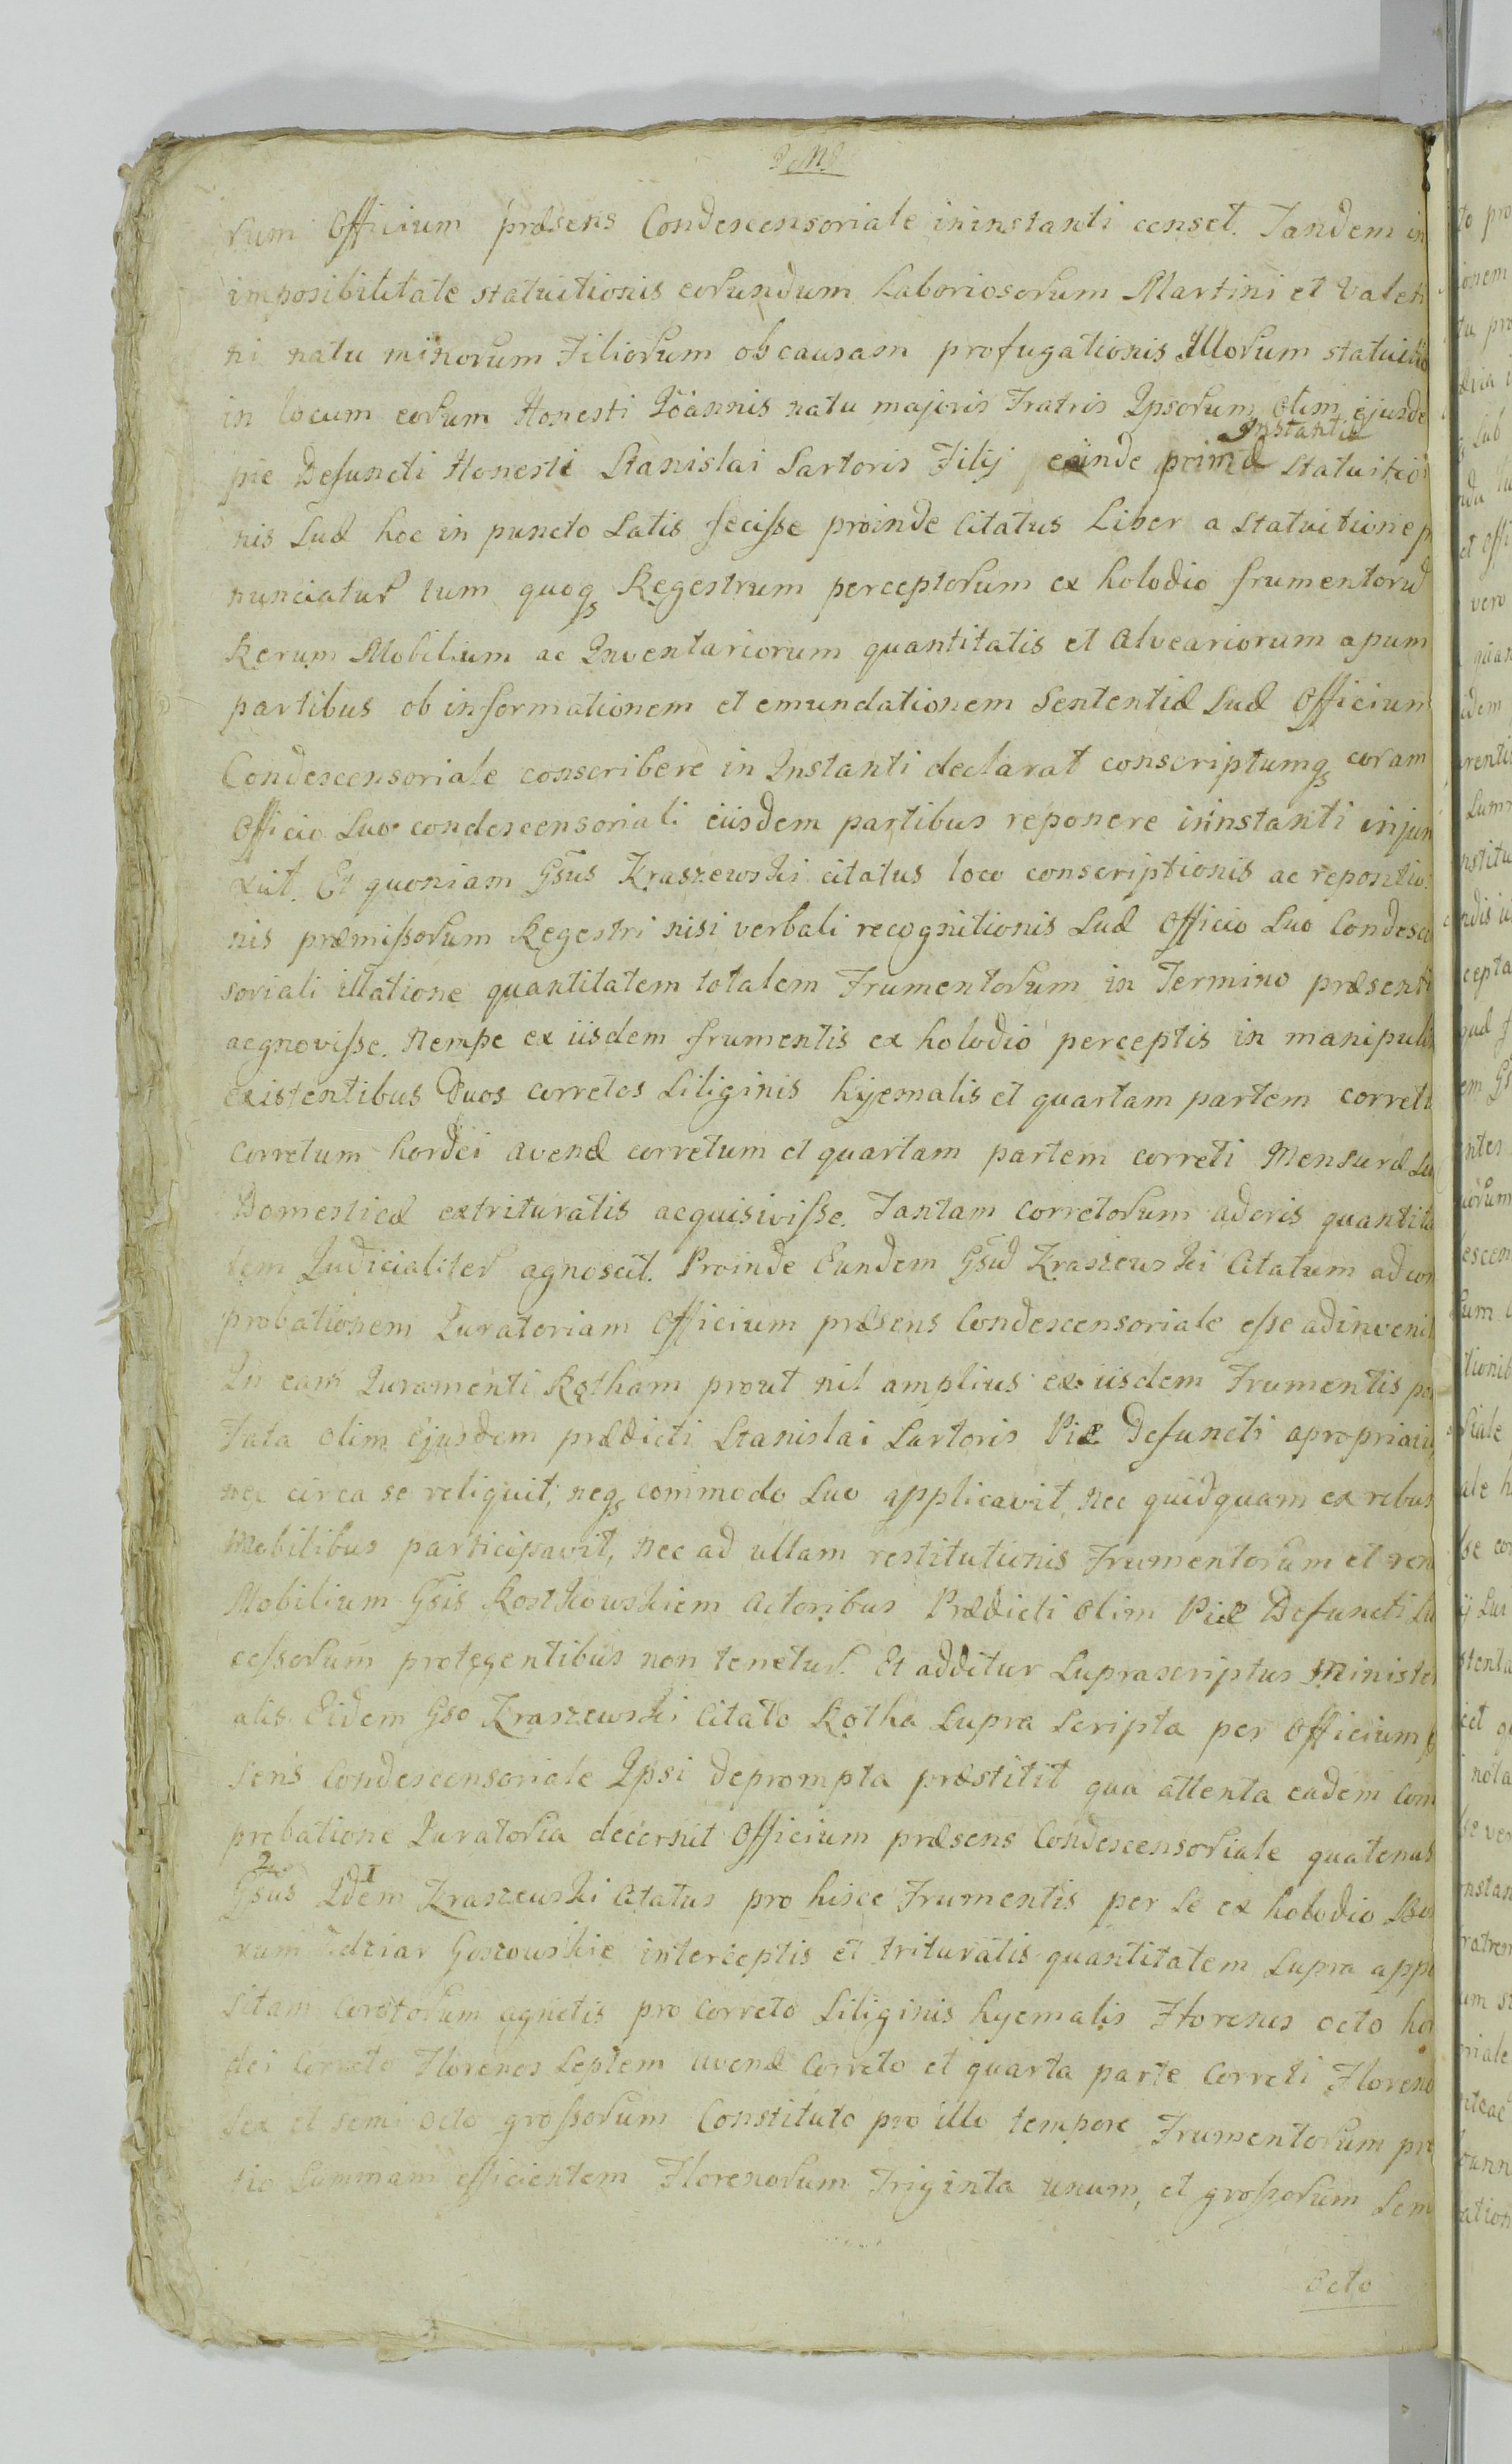 rum Officium præsens Condescensoriale ininstanti censet. Tandem in
imposibilitate statuitionis eorundum Laboriosorum Martini et Valen
ni natu minorum Filiorum ob causam profugationis Illorum statuitio
in locum eorum Honesti Joannis natu majoris Fratris Ipsorum olim ejusde
Instantiæ
pie Defuncti Honesti Stanislai Sartoris Filij exinde primæ Statuitio
nis Suæ hoc in puncto Satis fecisse proinde Citatus Liber a Statuitione p
nunciatur tum quoqs Regestrum perceptorum ex holodio frumentorũ
Rerum Mobilium ac Inventariorum quantitatis et Alveariorum apum
partibus ob informationem et emundationem Sententiæ Suæ Officium
Condescensoriale conscribere in Instanti declarat conscriptumqs coram
Officio Suo condescensoriali eiisdem partibus reponere ininstanti injun
xit. Et quoniam Gsus Kraszewski citatus loco conscriptionis ac repositio
nis præmissorum Regestri nisi verbali recognitionis Suæ Officio Suo Condesce
soriali illatione quantitatem totalem Frumentorum in Termino præsenti
aegnovisse. Nempe ex iisdem frumentis ex holodio perceptis in manipulis
existentibus Duos corretos Siliginis hyemalis et quartam partem correti
Corretum hordei avenæ corretum et quartam partem correti Mensuræ Su
Domesticæ extrituratis acquisivisse. Tantam corretorum adoris quantita
tem Judicialiter agnoscit. Proinde Eundem Gsũ Kraszewski Citatum ad com
probationem Juratoriam Officium præsens Condescensoriale esse adinvenit
In eam Juramenti Rotham prout nil amplius ex iisdem Frumentis po
Fata olim Ejusdem prædicti Stanislai Sartoris Piæ Defuncti apropriavit
nec circa se reliquit, neqs commodo Suo applicavit, nec quidquam ex rebus
Mobilibus participavit, nec ad ullam restitutionis Frumentorum et rerum
Mobilium Gsis Kostkowskiem Actoribus Prædicti olim Piæ Defuncti Su
cessorum protegentibus non tenetur. Et additur Suprascriptus Ministe
alis. Eidem Gso Kraszewski Citato Rotha Supra Scripta per Officium
sens Condescensoriale Ipsi deprompta præstitit qua attenta eadem Com
probatione Juratoria decernit Officium præsens Condescensoriale quatenus
2 1
Gsus Idem Kraszewski Citatus pro hisce Frumentis per Se ex holodio
rum Udziar Goszowskie interceptis et trituratis quantitatem Supra appo
sitam Corretorum agnitis pro Correto Siliginis hyemalis Florenos octo hor
dei Correto Florenos Septem avenæ Correto et quarta parte Correti Floreno
Sex et semi octo grossorum Constituto pro illo tempore Frumentorum pre
tio Summam efficientem Florenorum Triginta unum, et grossorum Sem
Octo